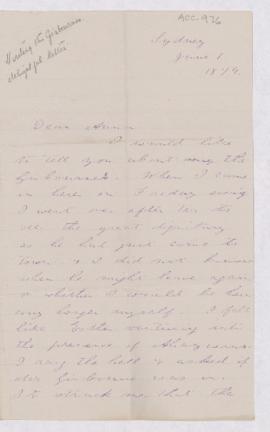 ACC 976
Meeting the Gisbornes
delightful letter
Sydney
June 1
1879.
Dear Anna
I would like
to tell you about the
Gisbornes. When I came
in here on Friday evening
I went over after tea to
see the great dignitary
as he had just come to
town & I did not know
when he might leave again
or whether I would be here
any longer myself. I felt
like Esther venturing into
the presence of Ahasuerus.
I rang the bell & asked if
Mr Gisborne was in.
It struck me that the